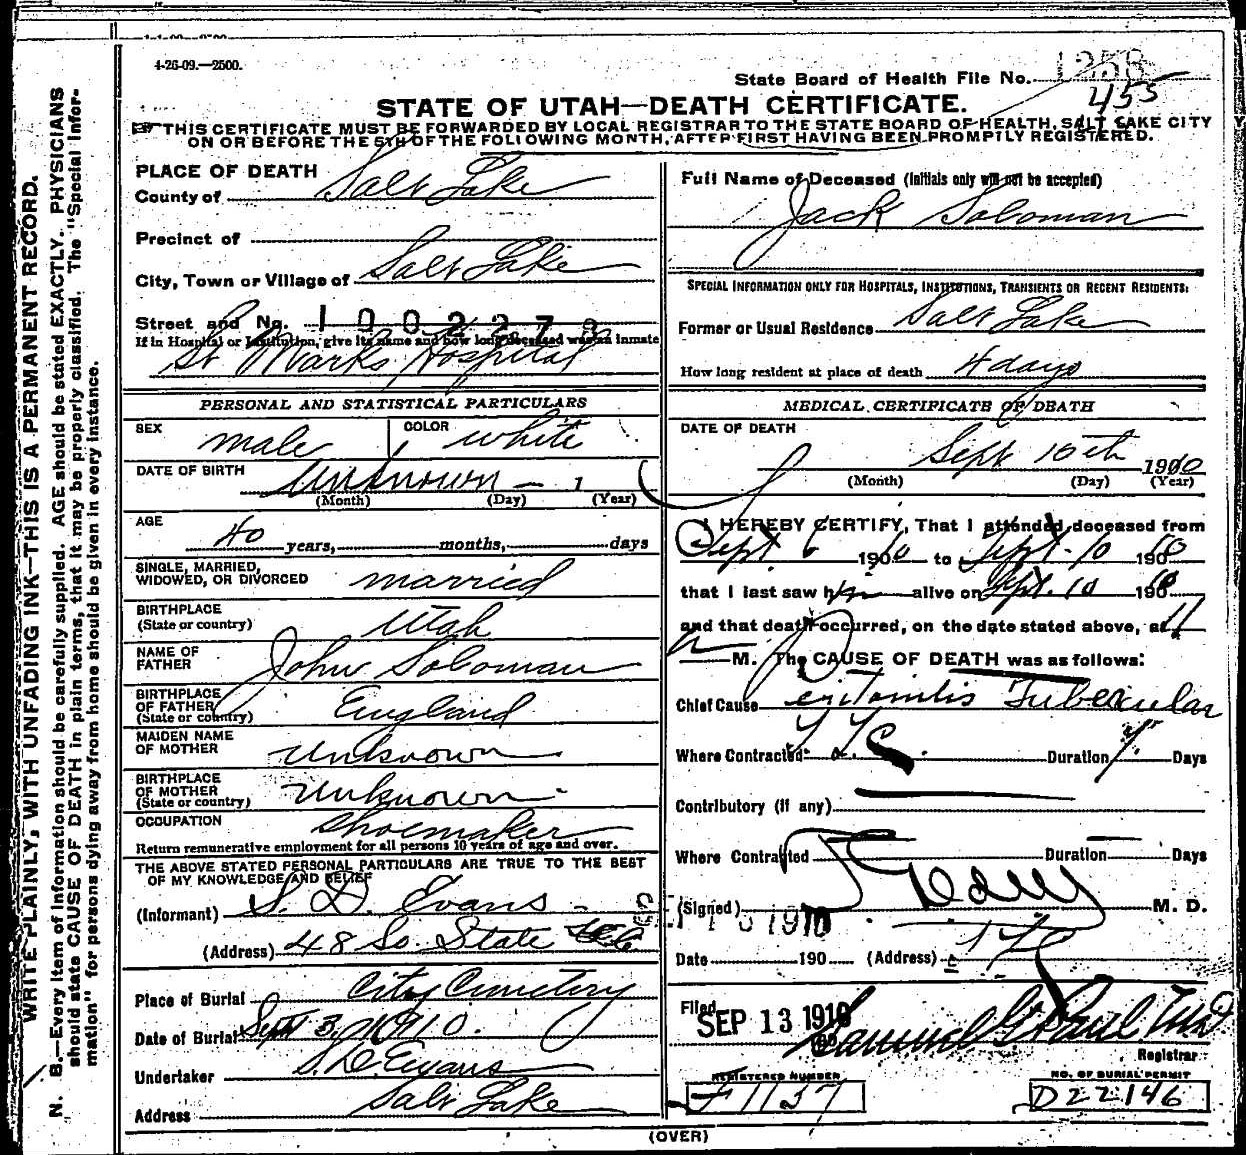 4-26-09.—2500.
State Board of Health File No. 1258
455
STATE OF UTAH—DEATH CERTIFICATE.
THIS CERTIFICATE MUST BE FORWARDED BY LOCAL REGISTRAR TO THE STATE BOARD OF HEALTH, SALT LAKE CITY
ON OR BEFORE THE 5TH OF THE FOLLOWING MONTH, AFTER FIRST HAVING BEEN PROMPTLY REGISTERED.
WRITE PLAINLY, WITH UNFADING INK—THIS IS A PERMANENT RECORD.
N. B.—Every item of information should be carefully supplied. AGE should be stated EXACTLY. PHYSICIANS
should state CAUSE OF DEATH in plain terms, that it may be properly classified. The "Special Infor-
mation" for persons dying away from home should be given in every instance.
PLACE OF DEATH
County of Salt Lake
Precinct of
City, Town or Village of Salt Lake
Street and No. 1002273
If in Hospital or Institution, give its name and how long deceased was an inmate
St Marks Hospital
PERSONAL AND STATISTICAL PARTICULARS
SEX male COLOR white
DATE OF BIRTH Unknown — 1
(Month) (Day) (Year)
AGE 40 years, months, days
SINGLE, MARRIED,
WIDOWED, OR DIVORCED married
BIRTHPLACE
(State or country) Utah
NAME OF
FATHER John Soloman
BIRTHPLACE
OF FATHER
(State or country) England
MAIDEN NAME
OF MOTHER unknown
BIRTHPLACE
OF MOTHER
(State or country) unknown
OCCUPATION Shoemaker
Return remunerative employment for all persons 10 years of age and over.
THE ABOVE STATED PERSONAL PARTICULARS ARE TRUE TO THE BEST
OF MY KNOWLEDGE AND BELIEF
(Informant) S. D. Evans
(Address) 48 So. State
Place of Burial City Cemetery
Date of Burial Sept 13 1910.
Undertaker S. D. Evans
Address Salt Lake
Full Name of Deceased (Initials only will not be accepted)
Jack Soloman
SPECIAL INFORMATION ONLY FOR HOSPITALS, INSTITUTIONS, TRANSIENTS OR RECENT RESIDENTS:
Former or Usual Residence Salt Lake
How long resident at place of death 4 days
MEDICAL CERTIFICATE OF DEATH
DATE OF DEATH
Sept 10th 1910
(Month) (Day) (Year)
I HEREBY CERTIFY, That I attended deceased from
Sept 6 1910 to Sept. 10 1910
that I last saw him alive on Sept. 10 1910
and that death occurred, on the date stated above, at 11
M. The CAUSE OF DEATH was as follows:
Chief Cause Peritonitis Tubercular
Where Contracted Duration Days
Contributory (if any)
Where Contracted Duration Days
(Signed) M. D.
1910
Date 190 (Address)
Filed SEP 13 1910
Samuel G Paul M.D
Registrar
REGISTERED NUMBER
F1137
NO. OF BURIAL PERMIT
D22146
(OVER)